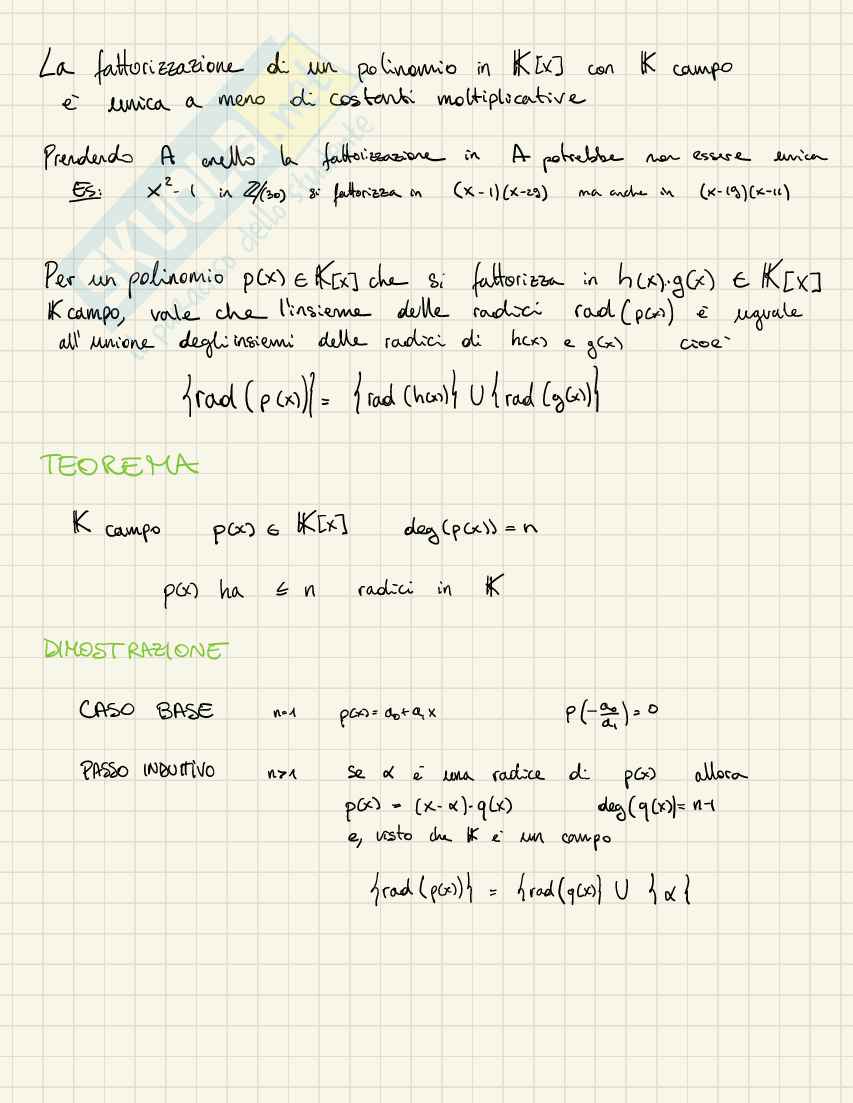 La fattorizzazione di un polinomio in 𝕂[x] con 𝕂 campo
è unica a meno di costanti moltiplicative
Prendendo A anello la fattorizzazione in A potrebbe non essere unica
Es: x²-1 in ℤ/(30) si fattorizza in (x-1)(x-29) ma anche in (x-19)(x-11)
Per un polinomio p(x) ∈ 𝕂[x] che si fattorizza in h(x)·g(x) ∈ 𝕂[x]
𝕂 campo, vale che l'insieme delle radici rad(p(x)) è uguale
all'unione degli insiemi delle radici di h(x) e g(x) cioè
{rad(p(x))} = {rad(h(x))} ∪ {rad(g(x))}
TEOREMA
𝕂 campo p(x) ∈ 𝕂[x] deg(p(x)) = n
p(x) ha ≤ n radici in 𝕂
DIMOSTRAZIONE
CASO BASE n=1 p(x) = a₀+a₁x p(-a₀/a₁) = 0
PASSO INDUTTIVO n>1 se α è una radice di p(x) allora
p(x) = (x-α)·q(x) deg(q(x)) = n-1
e, visto che 𝕂 è un campo
{rad(p(x))} = {rad(q(x)} ∪ {α}
SKUOLA.net
il paradiso dello studente